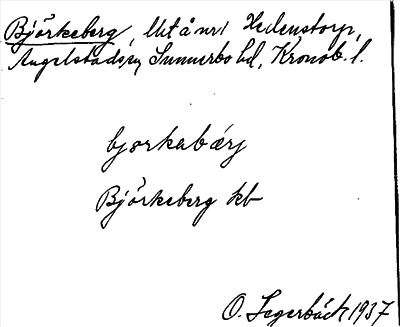 Björkeberg, Ut å nr 1 Hedenstorp,
Angelstads sn, Sunnerbo hd, Kronob. l.
bjorkabärj
Björkeberg kb
O. Segerbäck 1937